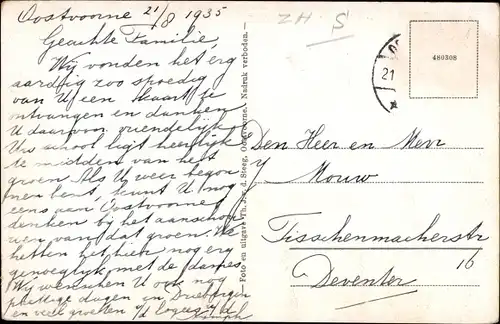 Oostvoorne 21/8 1935
Geachte Familie,
Wij vonden het erg
aardig zoo spoedig
van U een kaart te
ontvangen en danken
U daarvoor vriendelijk
Uw school ligt heerlijk
te midden van het
groen. Als U weer begon
nen bent, kunt U nog
eens aan Oostvoorne
denken bij het aanschou
wen van dat groen. We
hebben het hier nog erg
genoegelijk met de dames
Wij wenschen U ook nog
prettige dagen in Driebergen
en veel groeten v/d
ZH S
Foto en uitgave Th. J. v. d. Steeg, Oostvoorne. Nadruk verboden.
21
480308
Den Heer en Mevr
Mouw
Tisschenmacherstr
16
Deventer